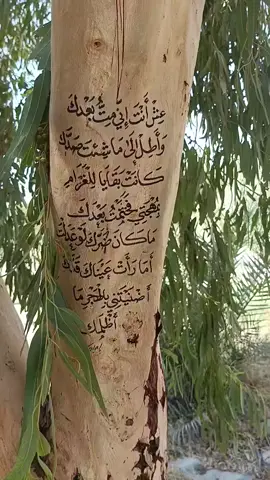 عِشْ أَنْتَ إِنِّي مِتُّ بَعْدَكْ
وَأَطِلْ إِلَى مَا شِئْتَ صَدَّكْ
كَانَتْ بَقَايَا لِلْغَرَامِ
بِمُهْجَتِي فَخَتَمْتُ بَعْدَكْ
مَا كَانَ ضَرَّكَ لَوْ عَدَلْتَ
أَمَا رَأَتْ عَيْنَاكَ قَدَّكْ
أَضْنَيْتَنِي بِالْهَجْرِ مَا
أَظْلَمَكْ